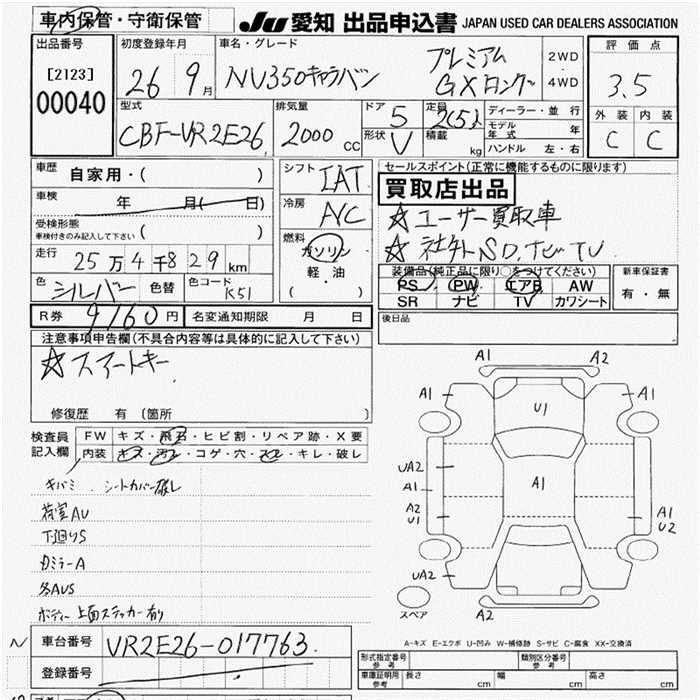 車内保管・守衛保管
JU 愛知 出品申込書 JAPAN USED CAR DEALERS ASSOCIATION
出品番号
[2123]
00040
初度登録年月
26年 9月
車名・グレード
NV350キャラバン
プレミアム
GXロング
2WD
4WD
評価点
3.5
外装 内装
C C
型式
CBF-VR2E26
排気量
2000 CC
ドア 5
形状 V
定員 2(5)人
積載 kg
ディーラー・並行
モデル年式 年
ハンドル 左・右
車歴
自家用・( )
車検
年 月( 日)
受検形態
車検付きのみ記入して下さい ( )
走行
25万4千829km
色 シルバー 色替 色コード K51
シフト IAT
冷房 A/C
燃料
ガソリン
軽油
( )
セールスポイント(正常に機能するものに限ります)
買取店出品
☆ユーザー買取車
☆社外SD,ナビTV
装備品(純正品に限り○をつけてください)
PS PW エアB AW
SR ナビ TV カワシート
新車保証書
有・無
R券 9160円 名変通知期限 月 日
後日品
注意事項申告欄(不具合内容等は具体的に記入して下さい)
☆スマートキー
修復歴 有 〔箇所 〕
検査員
記入欄
FW キズ・飛石・ヒビ割・リペア跡・X要
内装 キズ・汚レ・コゲ・穴・スレ・キレ・破レ
キバミ シートカバー破レ
荷室AU
下廻りS
カミラーA
各AUS
ボディー上面ステッカー有り
A1 A2
A1 U1 A1
UA2
A1 A1
A2
U1
A1
U2
UA2
スペア A2
A-キズ E-エクボ U-凹み W-補修跡 S-サビ C-腐食 XX-交換済
車台番号 VR2E26-017763
登録番号
形式指定番号
参考
類別区分番号
参考
車庫証明用
参考
長さ 幅 高さ